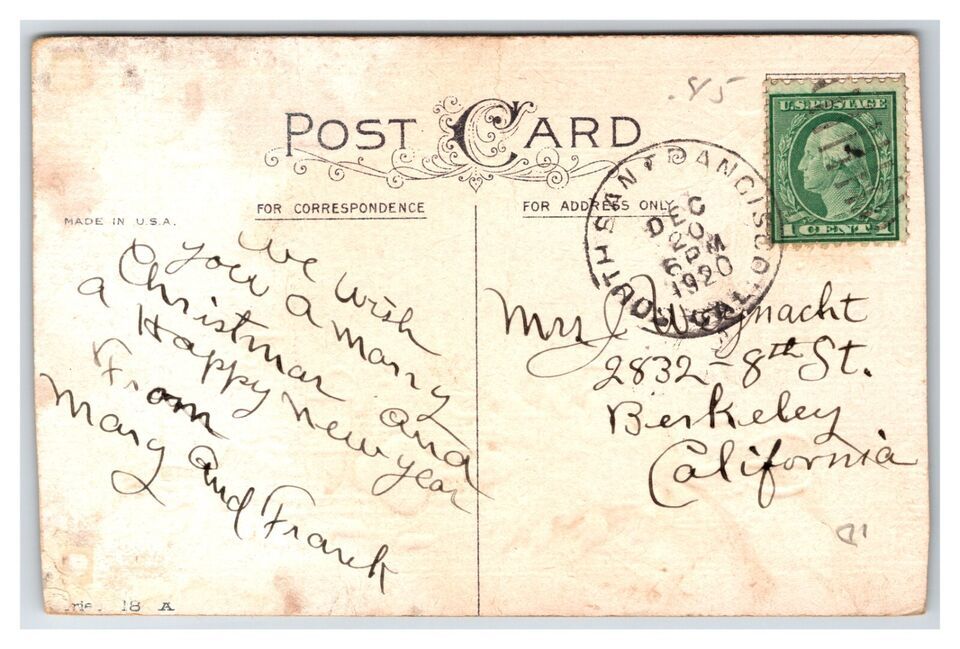 .85
POST CARD
U.S. POSTAGE
1 CENT 1
SOUTH SAN FRANCISCO, CAL.
DEC
20
6 PM
1920
MADE IN U.S.A.
FOR CORRESPONDENCE
FOR ADDRESS ONLY
We wish
you a marry
Christmas and
a Happy new year
From
Mary and Frank
Mrs J
2832 - 8th St.
Berkeley
California
18 A